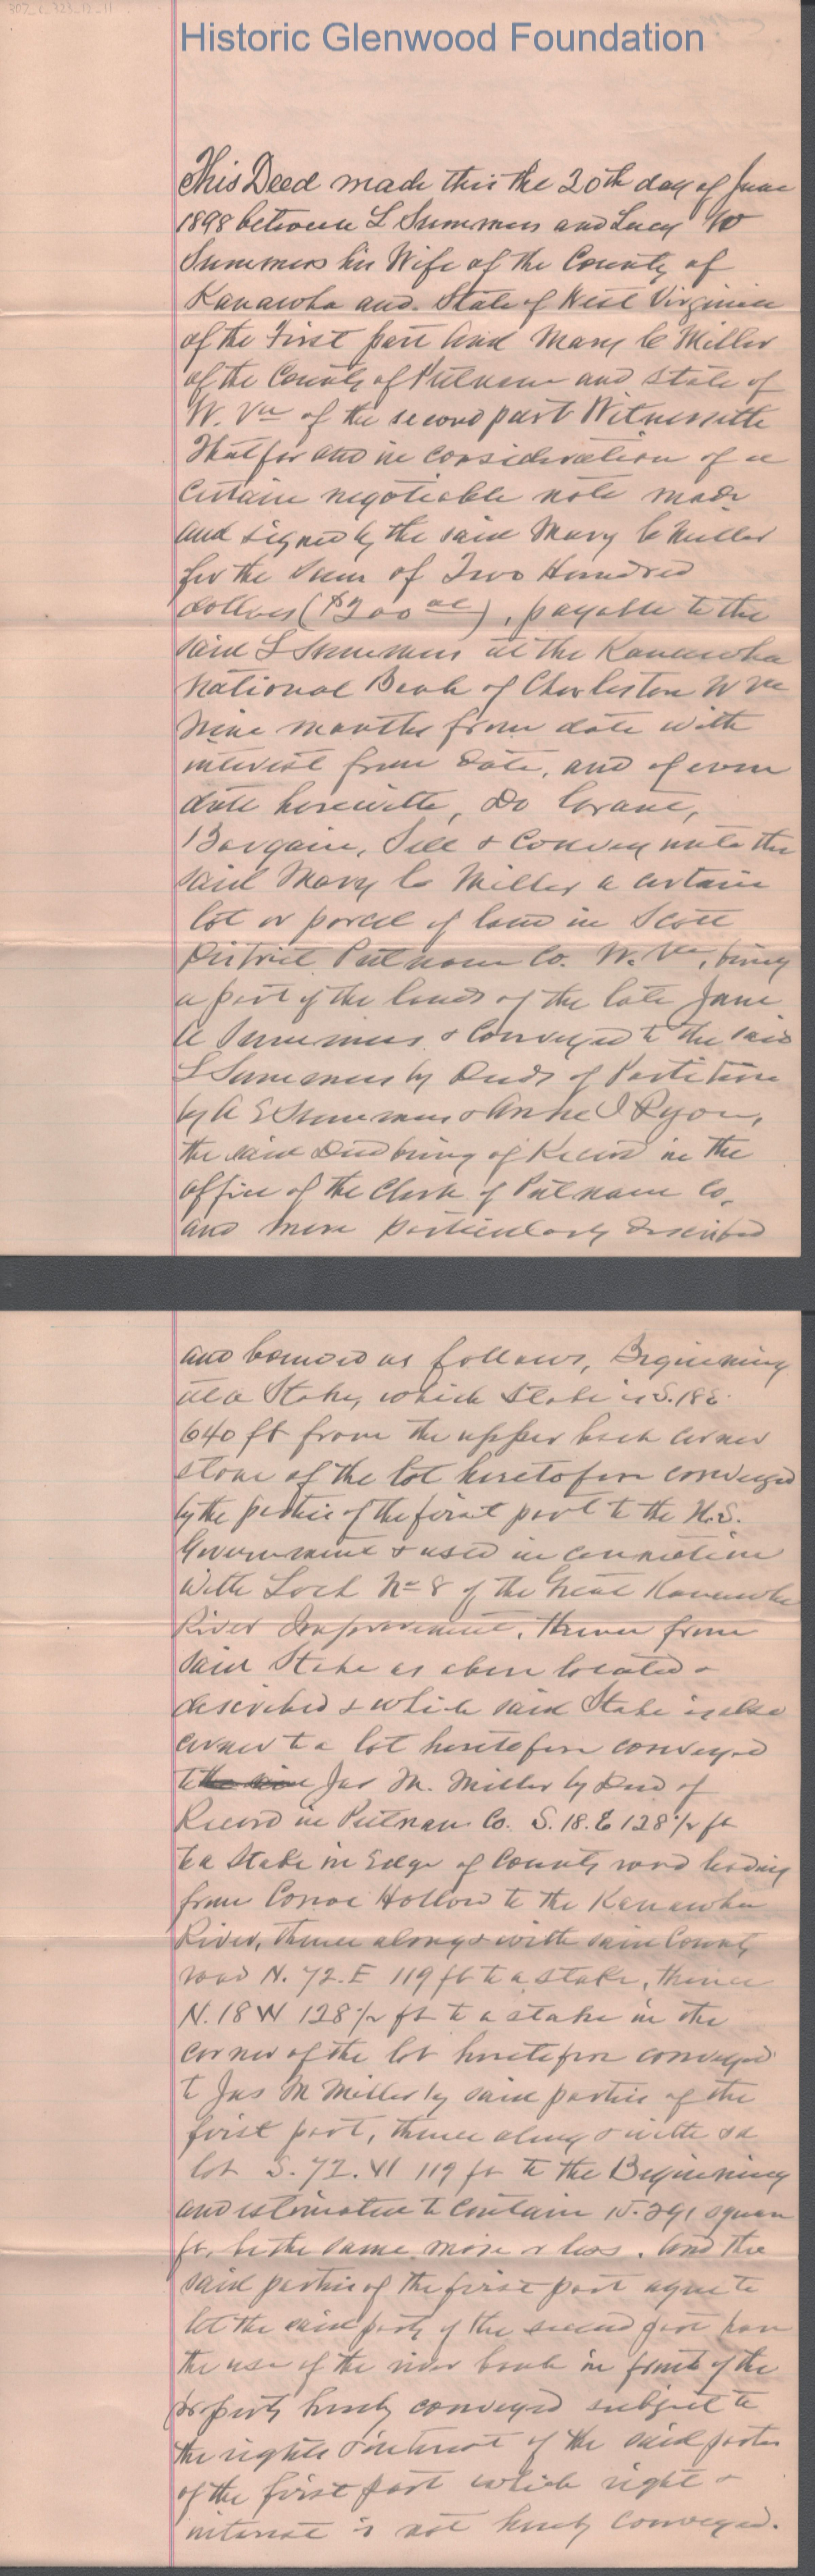 Historic Glenwood Foundation
This Deed made this the 20th day of June
1898 between L Summers and Lucy W
Summers his Wife of the County of
Kanawha and State of West Virginia
of the First part and Mary C Miller
of the County of Putnam and State of
W. Va of the second part Witnesseth
That for and in consideration of a
certain negotiable note made
and signed by the said Mary C Miller
for the Sum of Two Hundred
dollars ($200 00), payable to the
said L Summers at the Kanawha
National Bank of Charleston W Va
Nine months from date with
interest from date, and of even
date herewith, Do Grant,
Bargain, Sell & Convey unto the
said Mary C Miller a certain
lot or parcel of land in Scott
District Putnam Co. W. Va, being
a part of the lands of the late Jane
A Summers & conveyed to the said
L Summers by Deeds of Partition
by A E Summers & Anne I Ryon,
the said Deed being of Record in the
office of the Clerk of Putnam Co.
and more particularly described
and bounded as follows, Beginning
at a Stake, which Stake is S. 18 E
640 ft from the upper back corner
stone of the lot heretofore conveyed
by the parties of the first part to the U.S.
Government & used in connection
with Lock No 8 of the Great Kanawha
River Improvement, thence from
said Stake as above located &
described & which said Stake is also
corner to a lot heretofore conveyed
to Jas M. Miller by Deed of
Record in Putnam Co. S. 18. E 128 1/2 ft
to a Stake in Edge of County road leading
from Conoe Hollow to the Kanawha
River, thence along & with said County
road N. 72. E 119 ft to a stake, thence
N. 18 W 128 1/2 ft to a stake in the
corner of the lot heretofore conveyed
to Jas M Miller by said parties of the
first part, thence along & with sd
lot S. 72. W 119 ft to the Beginning
and estimated to contain 15.291 square
ft, be the same more or less. And the
said parties of the first part agree to
let the said party of the second part have
the use of the river bank in front of the
property hereby conveyed subject to
the rights & interest of the said parties
of the first part which right &
interest is not hereby conveyed.